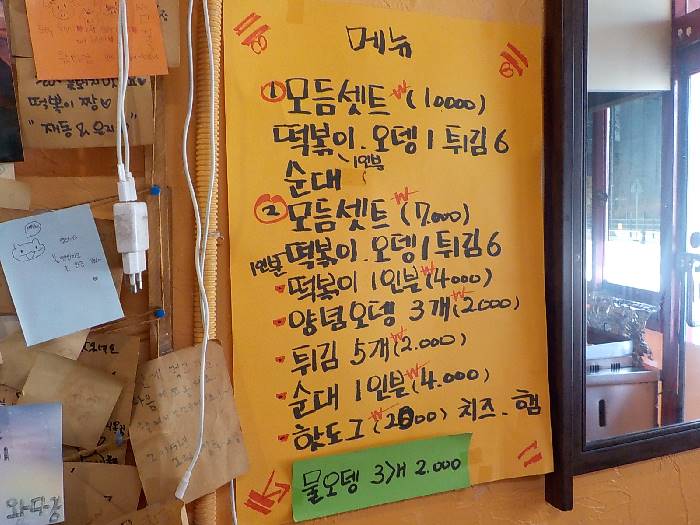 메뉴
① 모듬셋트 ₩(10.000)
떡볶이. 오뎅 1 튀김 6
1인분
순대
② 모듬셋트 ₩(7.000)
1인분 떡볶이. 오뎅 1 튀김 6
떡볶이 1인분 ₩(4000)
양념오뎅 3개 ₩(2000)
튀김 5개 ₩(2.000)
순대 1인분 ₩(4.000)
핫도그 ₩(2500) 치즈. 햄
물오뎅 3개 2.000
떡볶이 짱♡